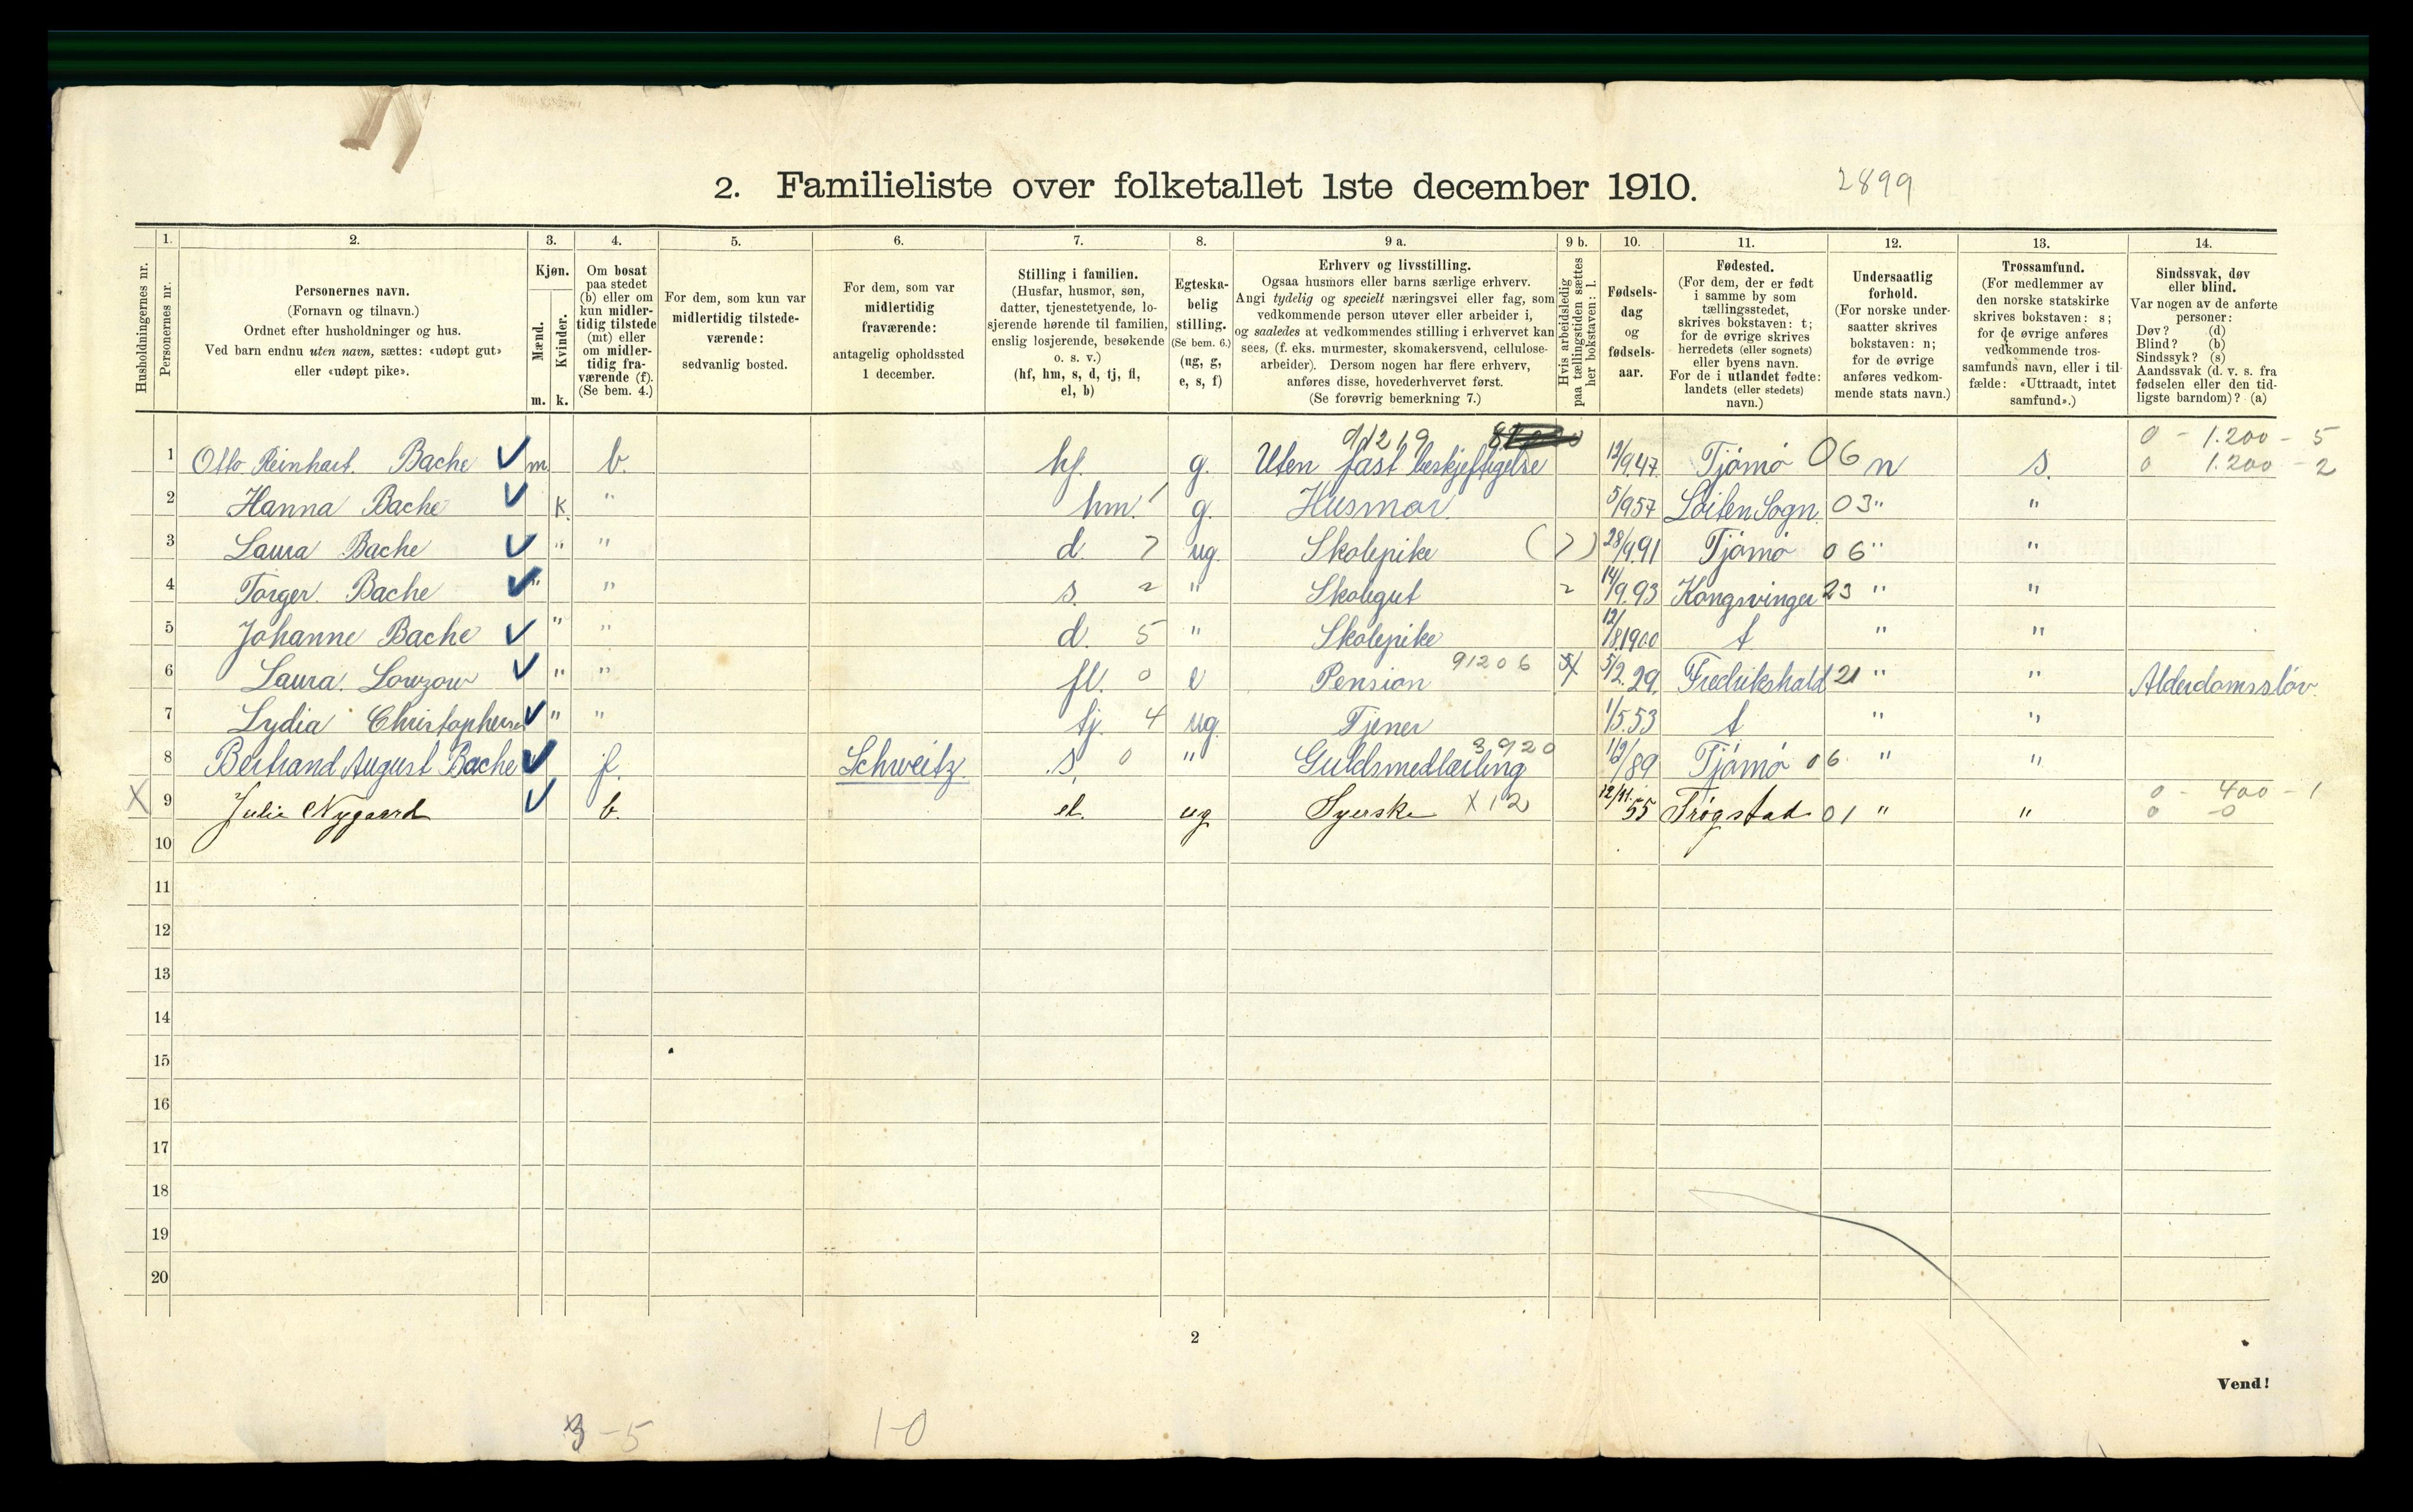 2. Familieliste over folketallet 1ste december 1910.
2899
Husholdningernes nr.
1.
Personernes nr.
2.
Personernes navn.
(Fornavn og tilnavn.)
Ordnet efter husholdninger og hus.
Ved barn endnu uten navn, sættes: «udøpt gut»
eller «udøpt pike».
3.
Kjøn.
Mænd.
Kvinder.
m. k.
4.
Om bosat
paa stedet
(b) eller om
kun midler-
tidig tilstede
(mt) eller
om midler-
tidig fra-
værende (f).
(Se bem. 4.)
5.
For dem, som kun var
midlertidig tilstede-
værende:
sedvanlig bosted.
6.
For dem, som var
midlertidig
fraværende:
antagelig opholdssted
1 december.
7.
Stilling i familien.
(Husfar, husmor, søn,
datter, tjenestetyende, lo-
sjerende hørende til familien,
enslig losjerende, besøkende
o. s. v.)
(hf, hm, s, d, tj, fl,
el, b)
8.
Egteska-
belig
stilling.
(Se bem. 6.)
(ug, g,
e, s, f)
9 a.
Erhverv og livsstilling.
Ogsaa husmors eller barns særlige erhverv.
Angi tydelig og specielt næringsvei eller fag, som
vedkommende person utøver eller arbeider i,
og saaledes at vedkommendes stilling i erhvervet kan
sees, (f. eks. murmester, skomakersvend, cellulose-
arbeider). Dersom nogen har flere erhverv,
anføres disse, hovederhvervet først.
(Se forøvrig bemerkning 7.)
9 b.
Hvis arbeidsledig
paa tællingstiden sættes
her bokstaven: l.
10.
Fødsels-
dag
og
fødsels-
aar.
11.
Fødested.
(For dem, der er født
i samme by som
tællingsstedet,
skrives bokstaven: t;
for de øvrige skrives
herredets (eller sognets)
eller byens navn.
For de i utlandet fødte:
landets (eller stedets)
navn.)
12.
Undersaatlig
forhold.
(For norske under-
saatter skrives
bokstaven: n;
for de øvrige
anføres vedkom-
mende stats navn.)
13.
Trossamfund.
(For medlemmer av
den norske statskirke
skrives bokstaven: s;
for de øvrige anføres
vedkommende tros-
samfunds navn, eller i til-
fælde: «Uttraadt, intet
samfund».)
14.
Sindssvak, døv
eller blind.
Var nogen av de anførte
personer:
Døv? (d)
Blind? (b)
Sindssyk? (s)
Aandssvak (d. v. s. fra
fødselen eller den tid-
ligste barndom)? (a)
0 - 1.200 - 5
1 Otto Reinhart. Bache m b. hf. g. Uten fast beskjeftigelse 12/9 47. Tjømø 06 n s. 0 1.200 - 2
2 Hanna Bache k. " hm. 1 g. Husmor. 5/9 57 Løiten Sogn. 03 " "
3 Laura Bache " " d. 7 ug. Skolepike (7) 28/9 91 Tjømø 06 " "
4 Torger. Bache " " s. 2 " Skolegut 2 14/9. 93 Kongsvinger 23 " "
5 Johanne Bache " " d. 5 " Skolepike 12/8 1900 t " "
6 Laura. Lowzow " " fl. 0 e Pension 91206 5/2. 29. Fredrikshald 21 " " Alderdomssløv.
7 Lydia Christophersen " " tj. 4 ug. Tjener 1/5. 53 t " "
8 Bertrand August Bache f. Schweitz. s. 0 " Guldsmedlærling 3920 1/2/89 Tjømø 06 " "
0 - 400 - 1
X 9 Julie Nygaard b. el. ug Syerske X12 12/11. 55 Trøgstad 01 " " 0 - 0
10
11
12
13
14
15
16
17
18
19
20
2
Vend!
3-5 1-0